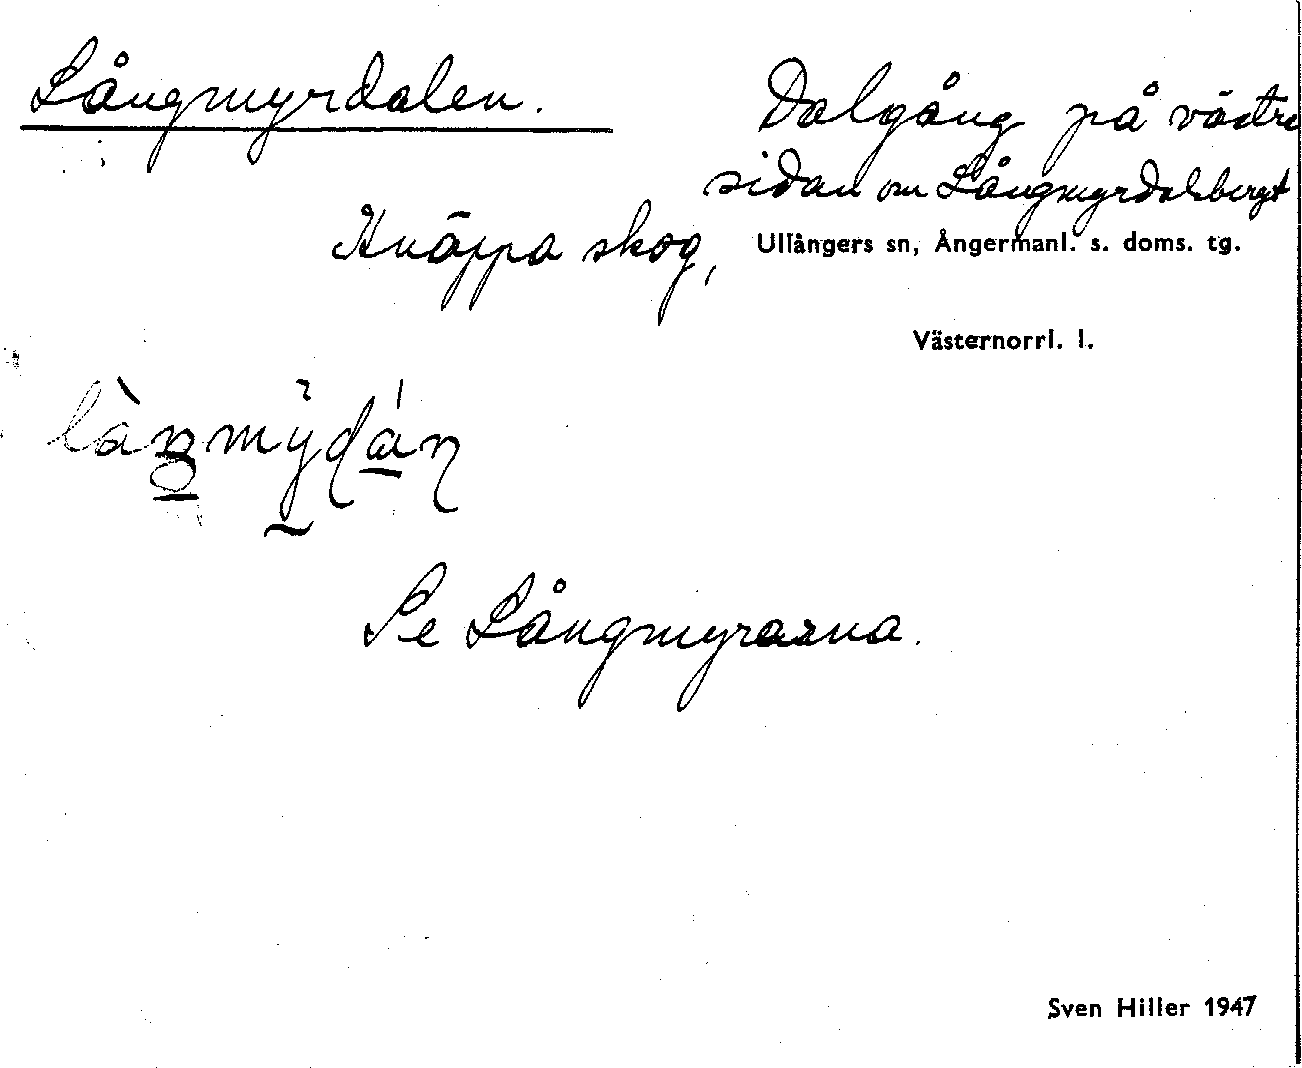 Långmyrdalen.
Dalgång på västra
sidan om Långmyrdalsbergt
Knäppa skog,
Ullångers sn, Ångermanl. s. doms. tg.
Västernorrl. l.
Se Långmyrarna.
Sven Hiller 1947